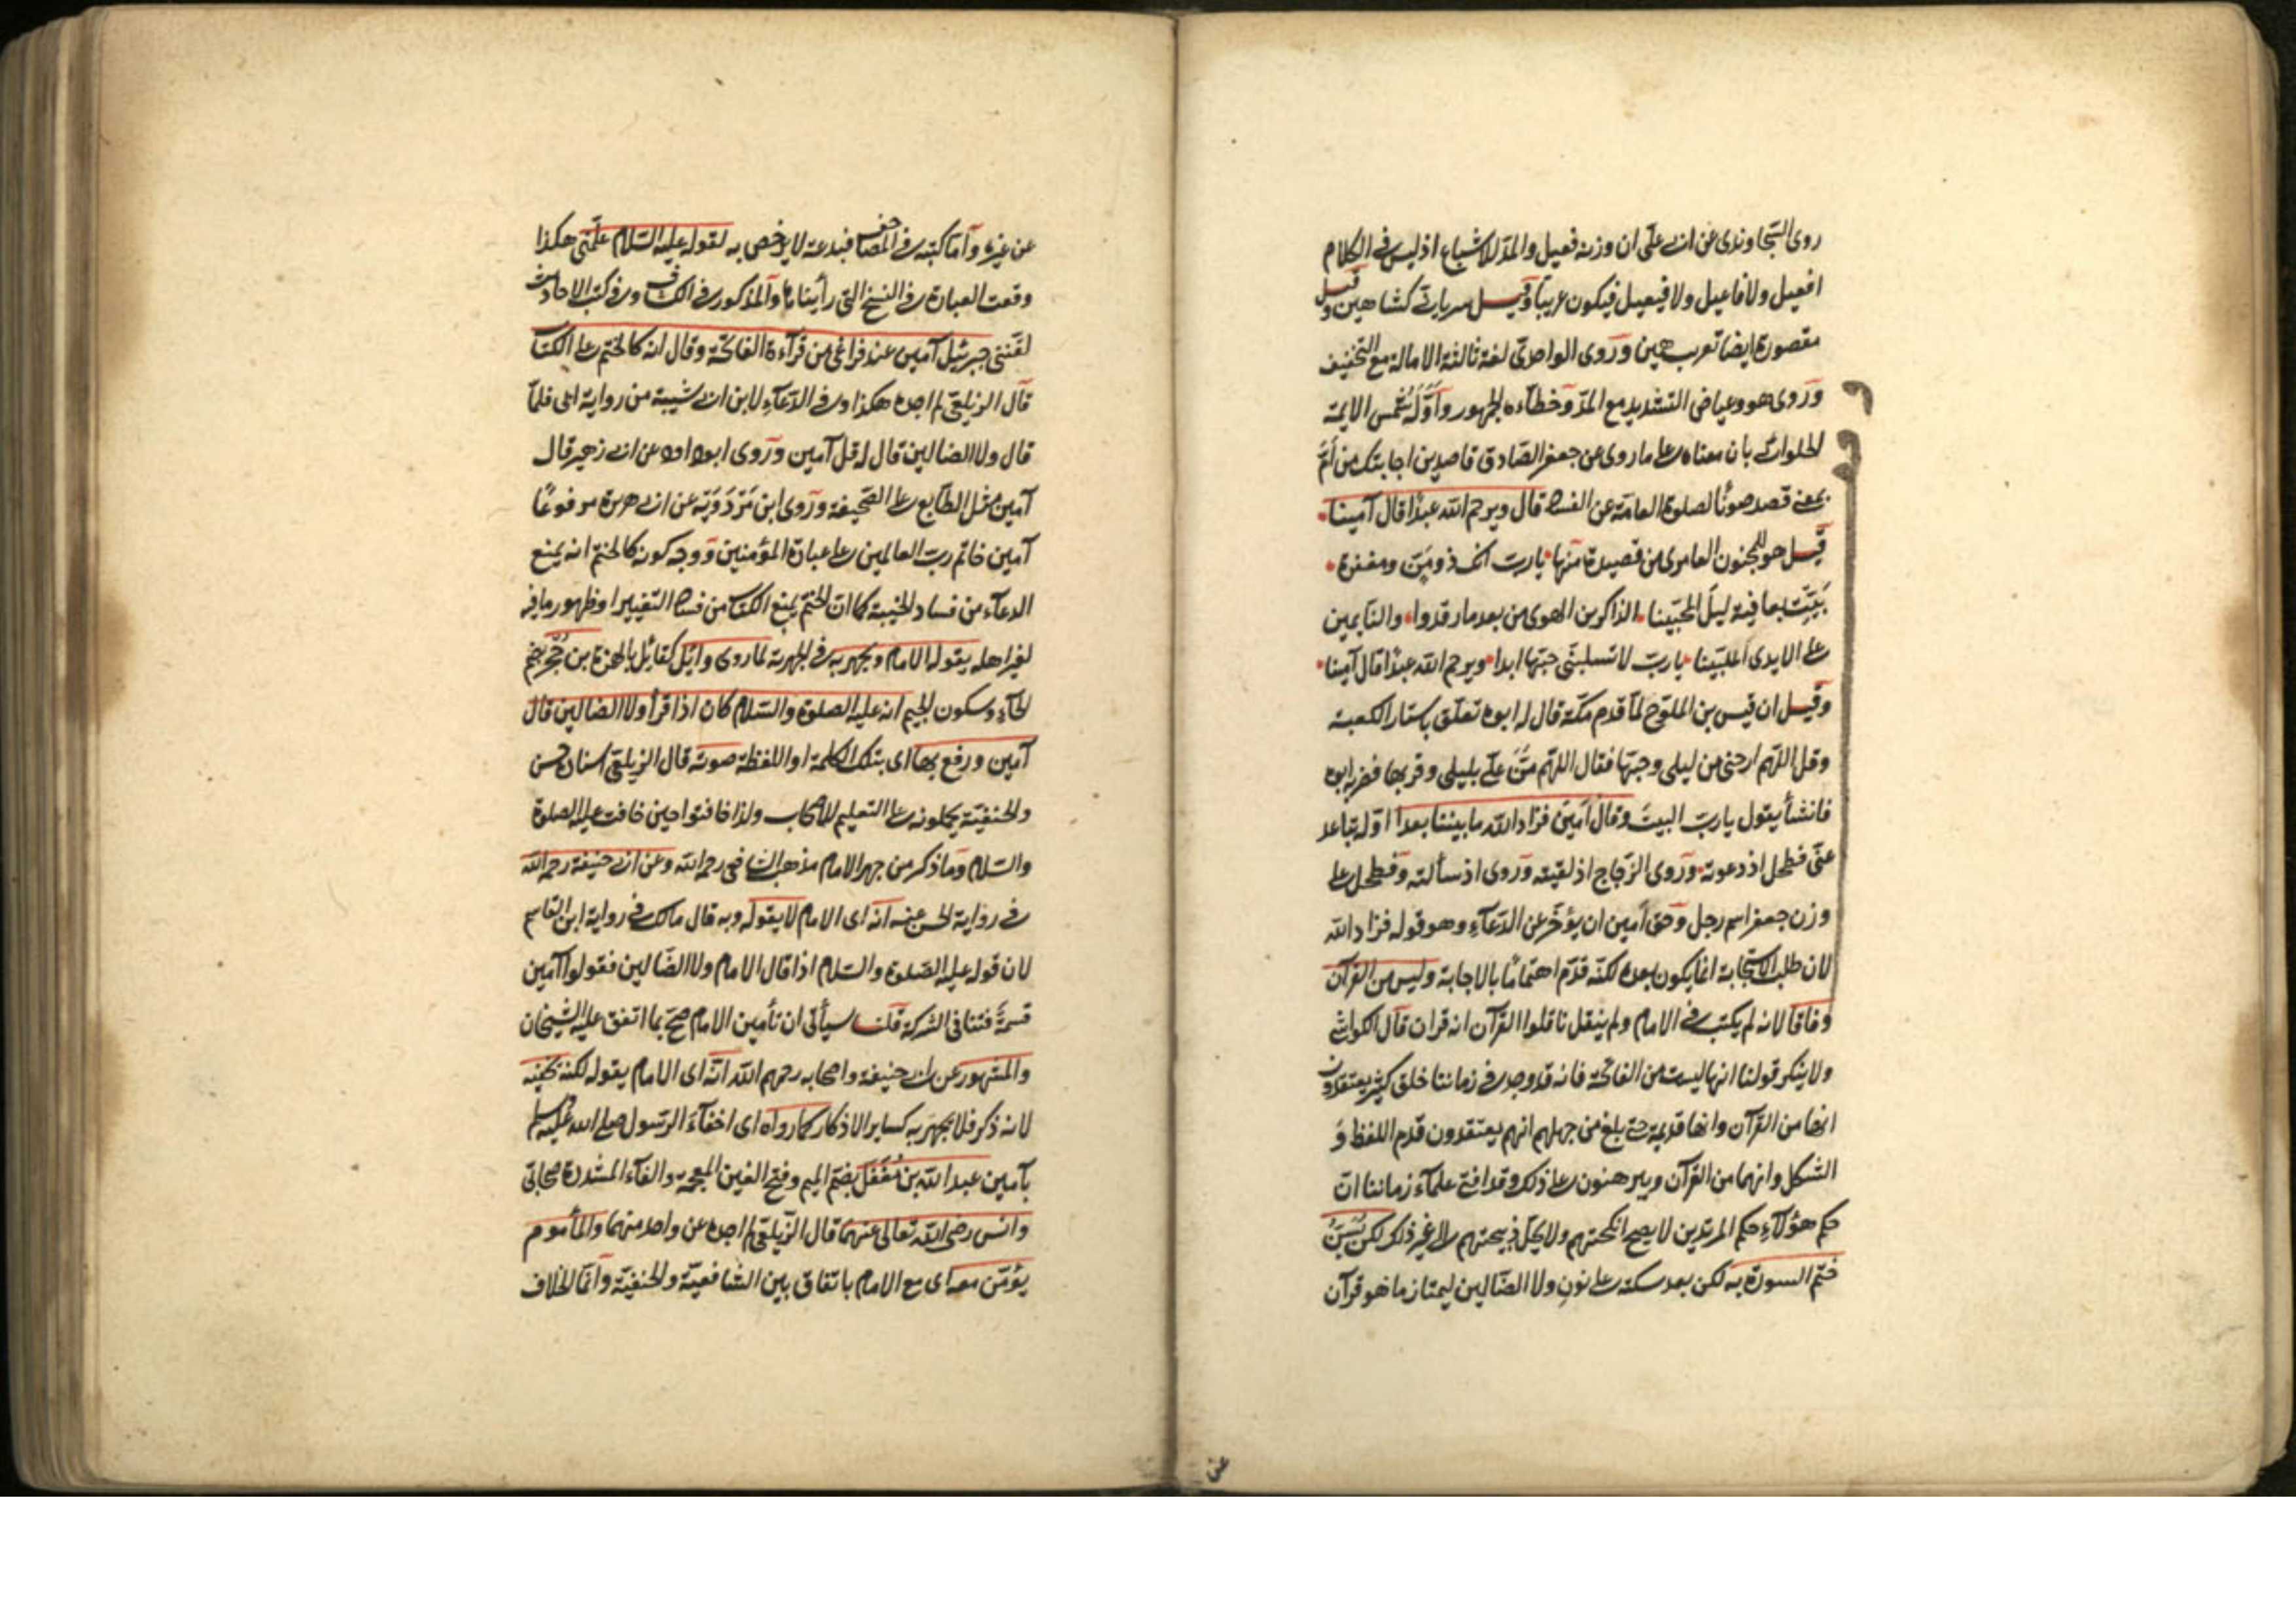 روى السجاوندى عن ابى على ان وزنه فعيل والمد للاشباع اذ ليس فى الكلام
افعيل ولا فاعيل ولا فيعيل فيكون عربيا وقيل سريانى كشاهين وقيل
مقصورة ايضا تعريب همين وروى الواحدى لغة ثالثة الامالة مع التخفيف
وروى هو وعياض التشديد مع المد وخطاءه الجمهور واوله شمس الايمة
الحلوانى بان معناه على ما روى عن جعفر الصادق قاصدين اجابتك من ام
بمعنى قصد صونا لصلوة العامة عن الفساد قال ويرحم الله عبدا قال آمينا
قيل هو للمجنون العامرى من قصيدة منها يارب انك ذو من ومغفرة
بيت بعافية ليل المحبينا الذاكرين الهوى من بعد ما رقدوا والنايمين
على الايدى المكبينا يارب لا تسلبنى حبها ابدا ويرحم الله عبدا قال آمينا
وقيل ان قيس بن الملوح لما قدم مكة قال له ابوه تعلق باستار الكعبة
وقل اللهم ارحنى من ليلى وحبها فقال اللهم من على بليلى وقربها فضربه ابوه
فانشأ يقول يارب البيت وقال امين فزاد الله ما بيننا بعدا اوله تباعد
عنى فطحل اذ دعوته وروى الزجاج اذ لقيته وروى اذ سألته وفطحل على
وزن جعفر اسم رجل وحق امين ان يؤخر عن الدعآء وهو قوله فزاد الله
لان طلب الاستجابة انما يكون بعده لكنه قدم اهتماما بالاجابة وليس من القرآن
وفاقا لانه لم يكتب فى الامام ولم ينقل ناقلوا القرآن انه قرآن قال الكواشى
ولا ينكر قولنا انها ليست من الفاتحة فانه قد وجد فى زماننا خلق كثير يعتقدون
انها من القرآن وانها قديمة حتى بلغ من جهلهم انهم يعتقدون قدم اللفظ و
الشكل وانهما من القرآن ويبرهنون على ذلك وقد افتى علمآء زماننا ان
حكم هؤلآء حكم المرتدين لا يصح انكحتهم ولا يحل ذبيحتهم الى غير ذلك لكن يسن
ختم السورة به لكن بعد سكتة على نون ولا الضالين ليمتاز ما هو قرآن
عن
عن غيره واما كتبه فى المصاحف فبدعة لا يرخص به لقوله عليه السلام علمنى هكذا
وقعت العبارة فى النسخ التى رأيناها والمذكور فى الكشاف وفى كتب الاحاديث
لقننى جبرئيل آمين عند فراغى من قرآءة الفاتحة وقال انه كالختم على الكتاب
قال الزيلعى لم اجده هكذا وفى الدعآء لابن ابى شيبة من رواية ابى فلما
قال ولا الضالين قال له قل آمين وروى ابو داود عن ابى زهير قال
آمين مثل الطابع على الصحيفة وروى ابن مردويه عن ابى هريرة مرفوعا
آمين خاتم رب العالمين على عباده المؤمنين ووجه كونه كالختم انه يمنع
الدعآء من فساد الخيبة كما ان الختم يمنع الكتاب من فساد التغيير او ظهور ما فيه
لغير اهله يقوله الامام ويجهر به فى الجهرية لما روى وائل كقائل بالهمزة بن حجر بضم
الحآء وسكون الجيم انه عليه الصلوة والسلام كان اذا قرأ ولا الضالين قال
آمين ورفع بها اى بتلك الكلمة او اللفظة صوته قال الزيلعى اسناده حسن
والحنفية يحملونه على التعليم للاصحاب ولذا خافتوا حين خافت عليه الصلوة
والسلام وما ذكر من جهر الامام مذهب الشافعى رحمه الله وعن ابى حنيفة رحمه الله
فى رواية الحسن عنه انه اى الامام لا يقوله وبه قال مالك فى رواية ابن القاسم
لان قوله عليه الصلوة والسلام اذا قال الامام ولا الضالين فقولوا آمين
قسمة فتنافى الشركة قلنا سيأتى ان تأمين الامام صح بما اتفق عليه الشيخان
والمشهور عن ابى حنيفة واصحابه رحمهم الله انه اى الامام يقوله لكنه يخفيه
لانه ذكر فلا يجهر به كسائر الاذكار كما رواه اى اخفآء الرسول صلى الله عليه وسلم
بآمين عبد الله بن مغفل بضم الميم وفتح الغين المعجمة والفآء المشددة صحابى
وانس رضى الله تعالى عنهما قال الزيلعى لم اجده عن واحد منهما والمأموم
يؤمن معه اى مع الامام باتفاق بين الشافعية والحنفية وانما الخلاف